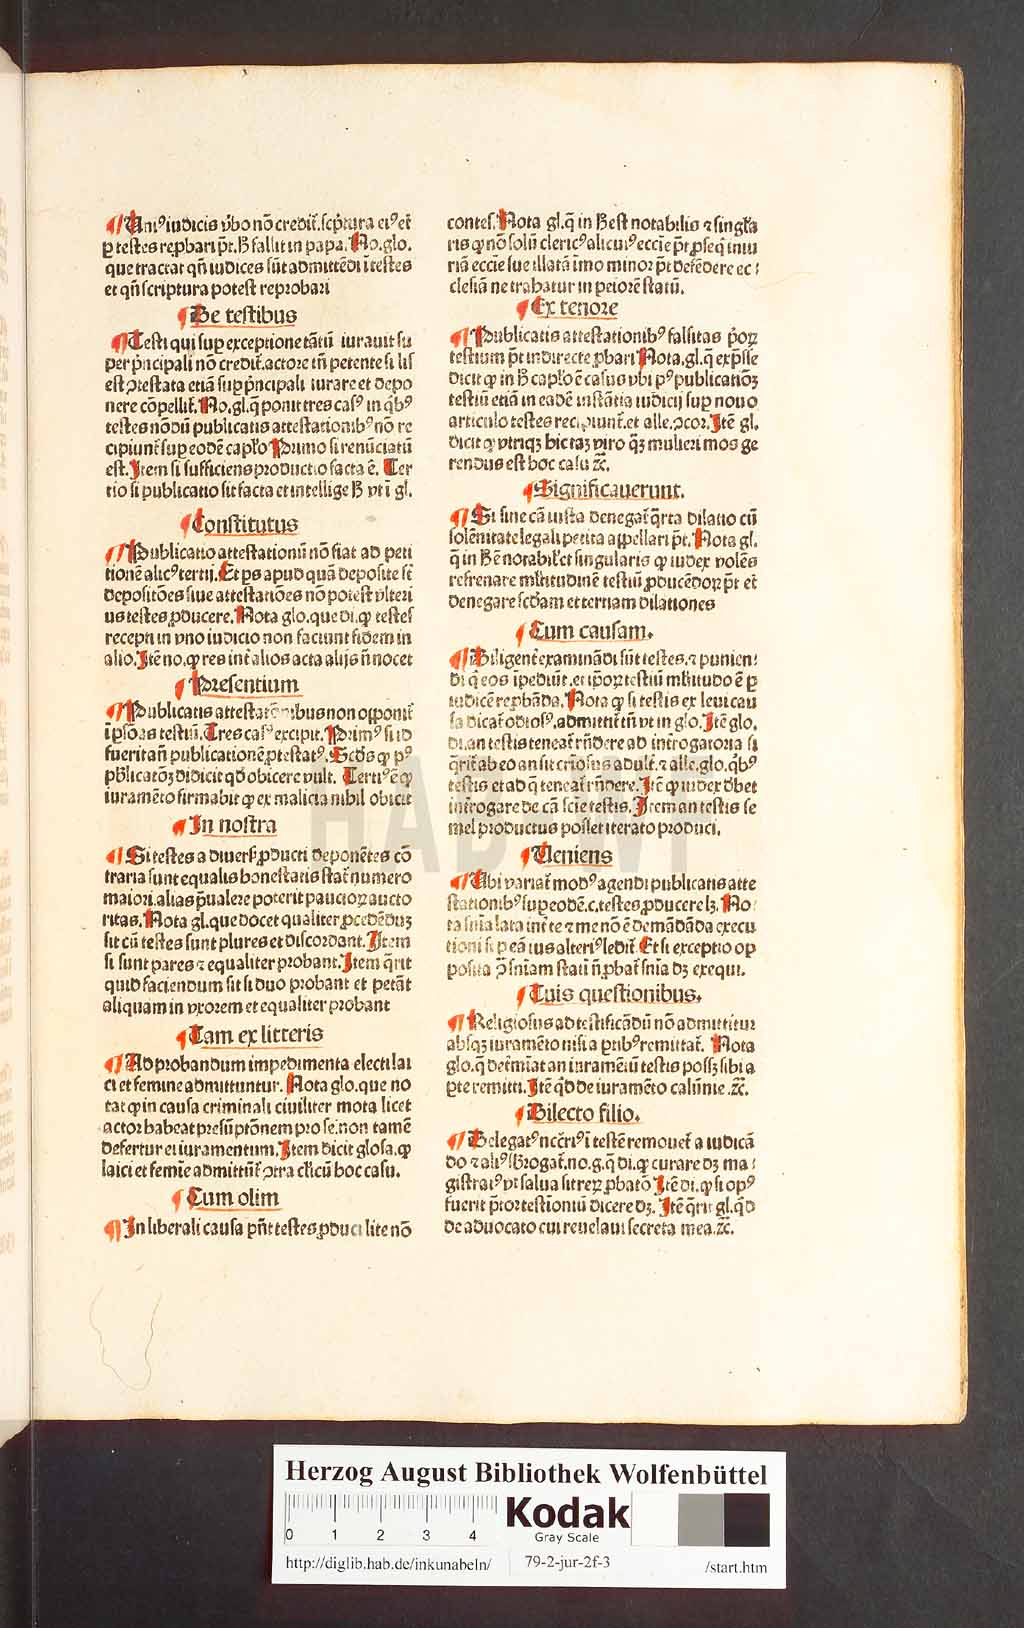 ¶ Uniꝰ iudicis v̓bo nō credit᷑. scp̄tura eiꝰ et̄
ꝑ testes reꝓbari pōt. hꝫ fallit in papa. No. glo.
que tractat qn̄ iudices sūt admittēdi ī testes
et qn̄ scriptura potest reprobari
¶ De testibus
¶ Testi qui sup exceptione tātū iurauit su
per p̄ncipali nō credit᷑. actore tn̄ petente si lis
est ꝯtestata etiā sup p̄ncipali iurare et depo
nere cōpellit᷑. No. gl. q̄ ponit tres casꝰ in q̄bꝰ
testes nōdū publicatis attestationibꝰ nō re
cipiunt᷑ sup eodē capl̓o Primo si renūciatū
est. Item si sufficiens productio facta ē. Ter
tio si publicatio sit facta et intellige hꝫ vt ī gl.
¶ Constitutus
¶ Publicatio attestationū nō fiat ad peti
tionē alicꝰ tertij. Et ps apud quā deposite st̄
depositōes siue attestatiōes nō potest vl̓teri
us testes ꝓducere. Nota glo. que di. ꝙ testes
recepti in vno iudicio non faciunt fidem in
alio. Itē no. ꝙ res int̓ alios acta alijs n̄ nocet
¶ Presentium
¶ Publicatis attestatōnibus non opponit᷑
ī ꝑsōas testiū. Tres casꝰ excipit. Primꝰ si id
fuerit an̄ publicationē ꝓtestatꝰ. Scd̓s ꝙ pꝰ
pb̓licatōꝫ didicit qd̓ obicere vult. Tertiꝰ ē ꝙ
iuramēto firmabit ꝙ ex malicia nihil obicit
¶ In nostra
¶ Si testes a diuers̓ ꝓducti deponētes cō
traria sunt equalis honestatis stat᷑ numero
maiori. alias p̄ualere poterit pauciorꝝ aucto
ritas. Nota gl. que docet qualiter ꝓcedēdūꝫ
sit cū testes sunt plures et discordant. Item
si sunt pares ⁊ equaliter probant. Item q̄rit
quid faciendum sit si duo probant et petāt
aliquam in vxorem et equaliter probant
¶ Tam ex litteris
¶ Ad probandum impedimenta electi lai
ci et femine admittuntur. Nota glo. que no
tat ꝙ in causa criminali ciuiliter mota licet
actor habeat presūptōnem pro se: non tamē
defertur ei iuramentum. Item dicit glosa. ꝙ
laici et femīe admittūt᷑ ꝯtra cl̓icū hoc casu.
¶ Cum olim
¶ In liberali causa pn̄t testes ꝓduci lite nō
contes̓. Nota gl. q̄ in hꝫ est notabilis ⁊ singl̓a
ris ꝙ nō solū clericꝰ alicuiꝰ eccl̓ie pōt ꝓseq̄ iniu
riā eccl̓ie sue illatā īmo minor pōt defēdere ec
clesiā ne trahatur in peiorē statū.
¶ Ex tenore
¶ Publicatis attestationibꝰ falsitas p̓orꝝ
testium pōt indirecte ꝓbari Nota. gl. q̄ exp̄sse
dicit ꝙ in hꝫ capl̓o ē casus vbi pꝰ publicatiōꝫ
testiū etiā in eadē instātia iudicij sup nouo
articulo testes recipiunt᷑. et alle. ꝯcor. Itē gl.
dicit ꝙ vtriqꝫ hic taꝫ viro qꝫ mulieri mos ge
rendus est hoc casu ⁊c̄.
¶ Significauerunt.
¶ Si sine cā iusta denegat᷑ q̄rta dilatio cū
solēnitate legali petita appellari pōt. Nota gl.
q̄ in hꝫ ē notabil̓ et singularis ꝙ iudex volēs
refrenare ml̓titudinē testiū ꝓducēdorꝝ pōt et̄
denegare scd̓am et tertiam dilationes
¶ Cum causam.
¶ Diligent᷑ examināndi sūt testes. ⁊ punien
di q̄ eos īpediūt. et īp̄orꝝ testiū ml̓titudo ē ꝑ
iudicē reꝓbāda. Nota ꝙ si testis ex leui cau
sa dicat᷑ odiosꝰ. admittit᷑ tn̄ vt in glo. Itē glo.
di. an testis teneat᷑ rn̄dere ad int̓rogatoria si
q̄rit᷑ ab eo an sit criōsus adult᷑. ⁊ alle. glo. q̄bꝰ
testis et ad q̄ teneat᷑ rn̄dere. Itē ꝙ iudex dꝫbet
int̓rogare de cā scīe testis. Item an testis se
mel productus posset iterato produci.
¶ Ueniens
¶ Ubi variat᷑ modꝰ agendi publicatis atte
stationibꝰ sup eodē. c. testes ꝓducere lꝫ. No
ta snīa lata int̓ te ⁊ me nō ē demādāda execu
tioni si ꝑ eā ius alteriꝰ ledit᷑. Et si exceptio op
posita ꝯ̄ snīam statī n̄ ꝓbat᷑ snīa dꝫ exequi.
¶ Tuis questionibus.
¶ Religiosus ad testificādū nō admittitur
absqꝫ iuramēto nisi a ꝑtibꝰ remittat᷑. Nota
glo. q̄ det̓miat an iuramētū testis possꝫ sibi a
ꝑte remitti. Itē qd̓ de iuramēto calūnie. ⁊c̄.
¶ Dilecto filio.
¶ Delegatꝰ nēcc̄riꝰ ī testē remouet᷑ a iudicā
do ⁊ aliꝰ s̓brogat᷑. no. g. q̄ di. ꝙ curare dꝫ ma
gistratꝰ vt salua sit rerꝝ ꝓbatō Itē di. ꝙ si opꝰ
fuerit p̓or testīoniū dicere dꝫ. Itē q̄rit gl. qd̓
de aduocato cui reuelaui secreta mea. ⁊c̄.
Herzog August Bibliothek Wolfenbüttel
0 1 2 3 4
Kodak
Gray Scale
http://diglib.hab.de/inkunabeln/ 79-2-jur-2f-3 /start.htm
HAB WF